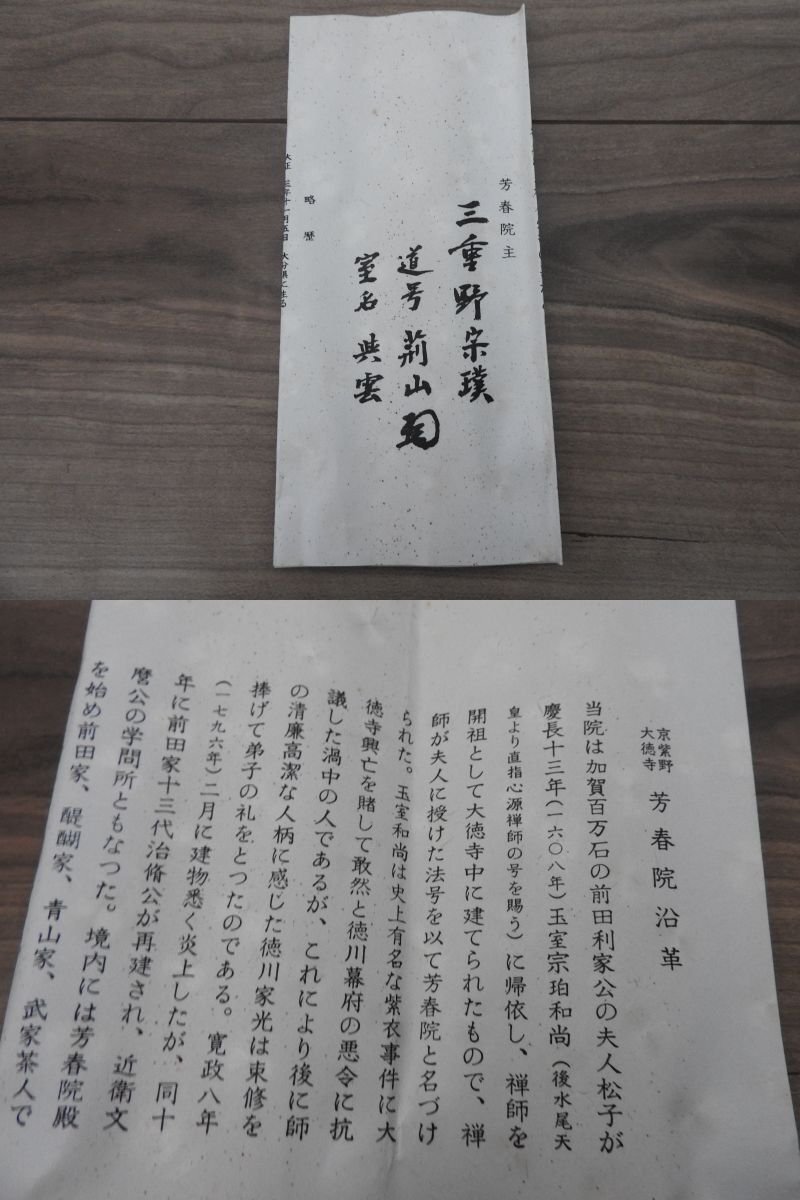 芳春院主
三重野宗璞
道号 荊山
室名 興雲
略歴
大正 三年十一月五日 大分県に生る
京紫野
大徳寺
芳春院沿革
当院は加賀百万石の前田利家公の夫人松子が
慶長十三年(一六〇八年)玉室宗珀和尚(後水尾天
皇より直指心源禅師の号を賜う)に帰依し、禅師を
開祖として大徳寺中に建てられたもので、禅
師が夫人に授けた法号を以て芳春院と名づけ
られた。玉室和尚は史上有名な紫衣事件に大
徳寺興亡を賭して敢然と徳川幕府の悪令に抗
議した渦中の人であるが、これにより後に師
の清廉高潔な人柄に感じた徳川家光は束修を
捧げて弟子の礼をとったのである。寛政八年
(一七九六年)二月に建物悉く炎上したが、同十
年に前田家十三代治脩公が再建され、近衛文
麿公の学問所ともなつた。境内には芳春院殿
を始め前田家、醍醐家、青山家、武家茶人で